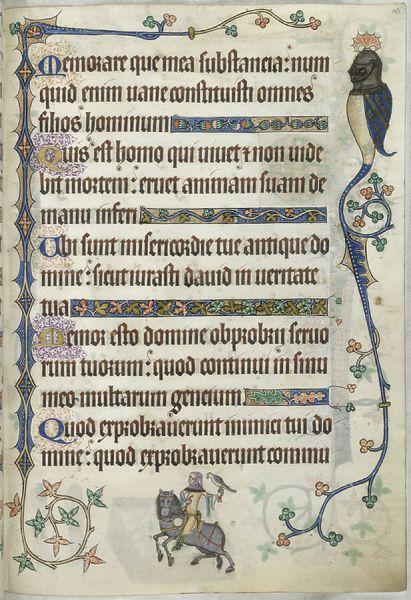 Memorare que mea substancia: num
quid enim uane constituisti omnes
filios hominum
Quis est homo qui uiuet ⁊ non uide
bit mortem: eruet animam suam de
manu inferi
Ubi sunt misericordie tue antique do
mine: sicut iurasti dauid in ueritate
tua
Memor esto domine obprobrij seruo
rum tuorum: quod continui in sinu
meo multarum gencium
Quod exprobrauerunt inimici tui do
mine: quod exprobrauerunt commu